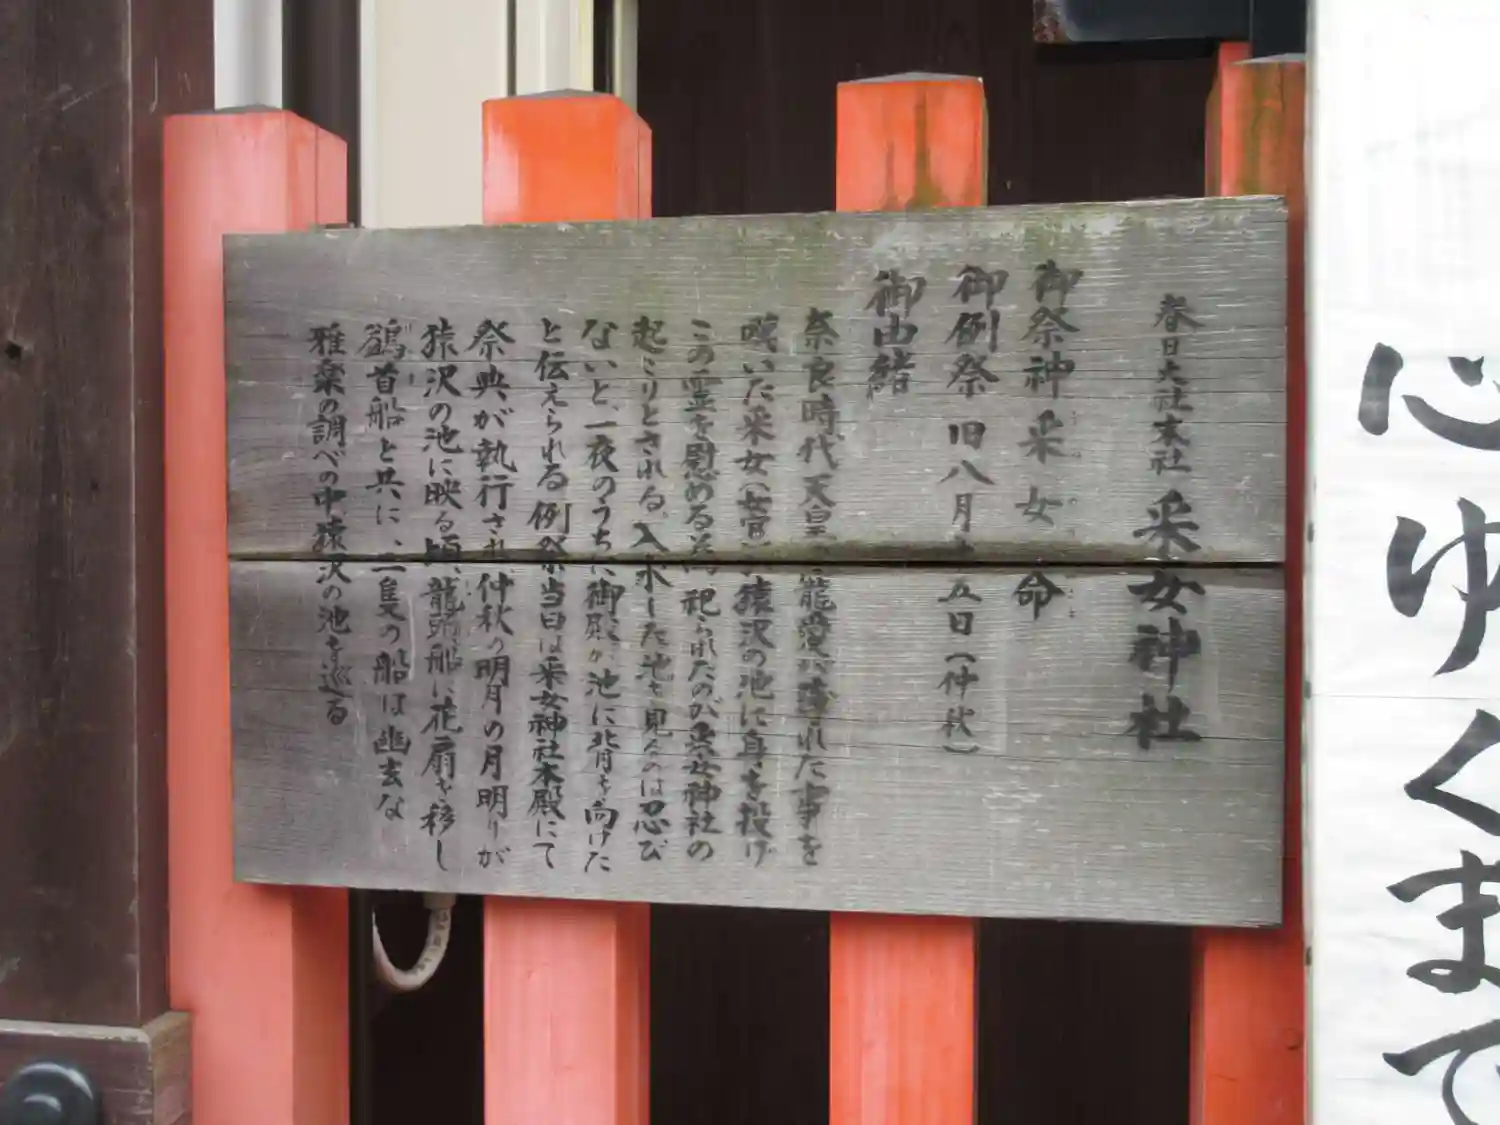 春日大社末社 采女神社
御祭神 采女命
御例祭 旧八月十五日(仲秋)
御由緒
奈良時代天皇の寵愛が薄れた事を
嘆いた采女(女官)が猿沢の池に身を投げ
この霊を慰める為に祀られたのが采女神社の
起こりとされる。入水した池を見るのは忍び
ないと、一夜のうちに御殿が池に背を向けた
と伝えられる 例祭当日は采女神社本殿にて
祭典が執行され、仲秋の明月の月明りが
猿沢の池に映る頃、龍頭船に花扇を移し
鷁首船と共に、二隻の船は幽玄な
雅楽の調べの中猿沢の池を巡る
心ゆくまで